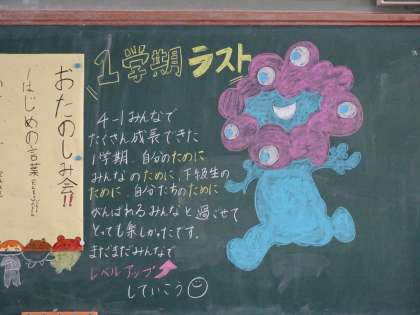 1学期ラスト
4-1みんなで
たくさん成長できた
1学期、自分のために
みんなのために、下級生の
ために、自分たちのために
がんばれるみんなと過ごせて
とっても楽しかったです。
まだまだみんなで
レベルアップ
していこう
おたのしみ会!!
はじめの言葉